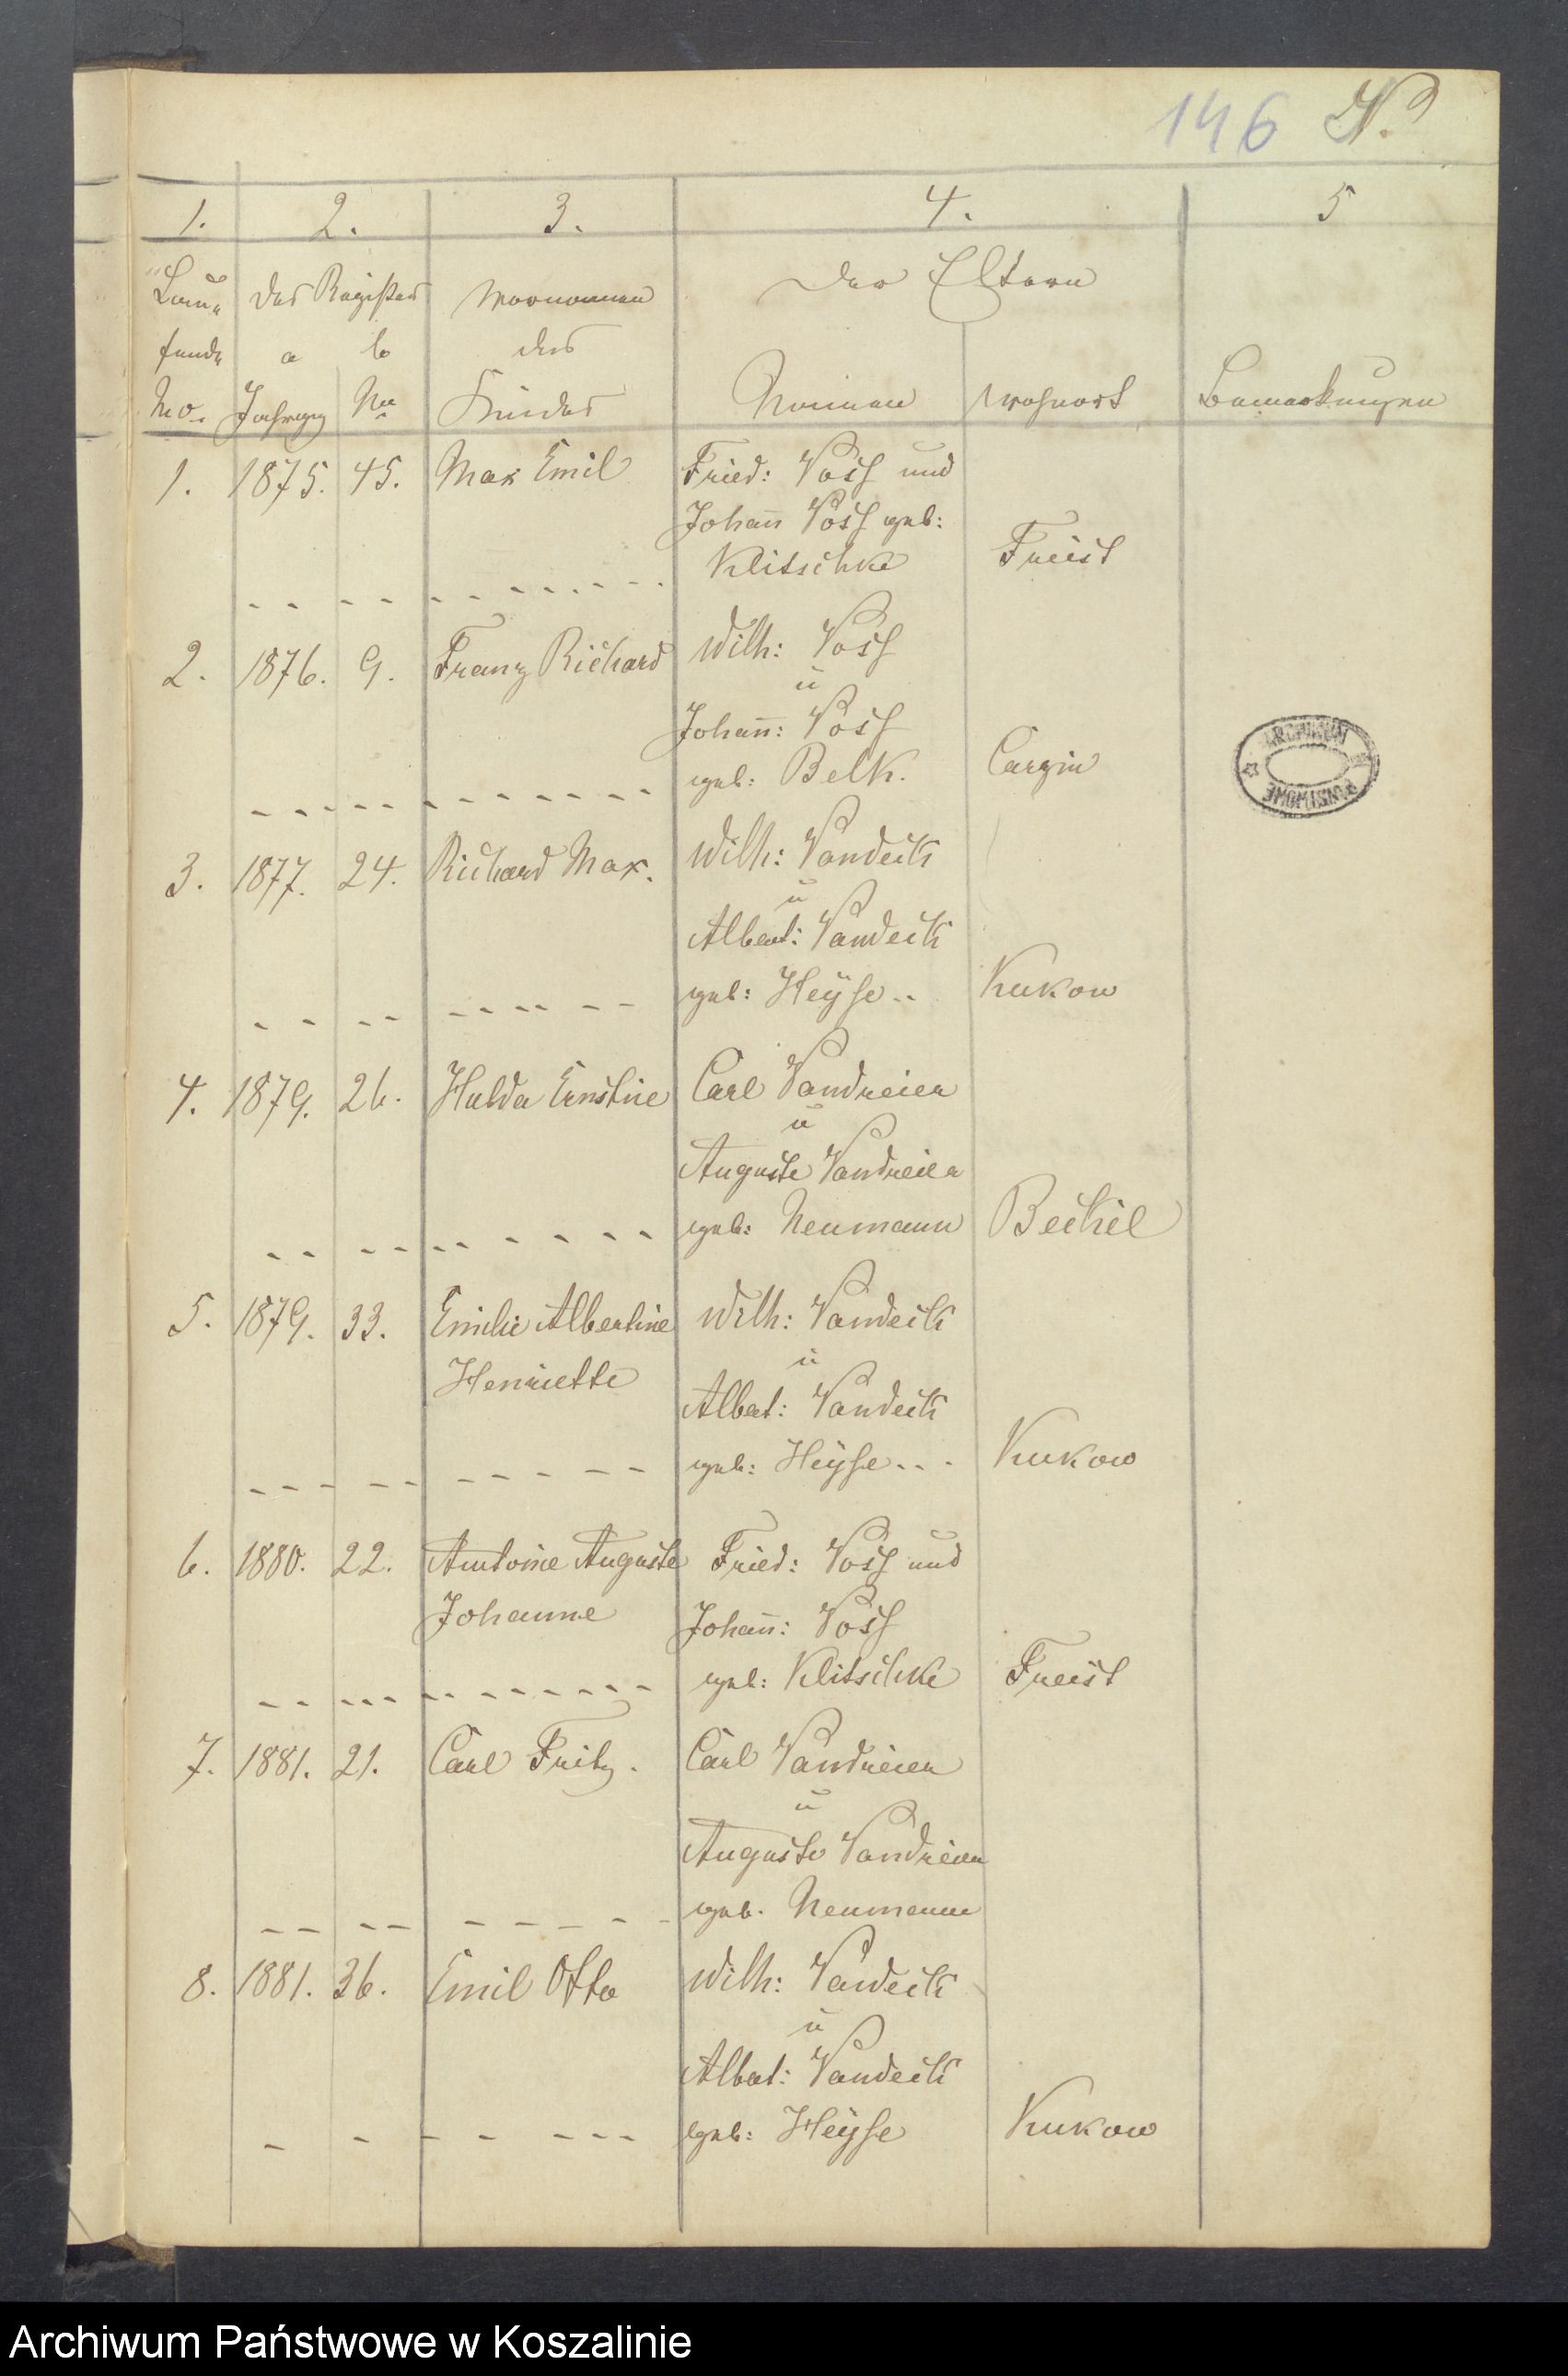 146 V.
1. 2. 3. 4. 5
Lau- des Registers Vornamen der Eltern
fende a b des
No. Jahrgang No Kindes Namen Wohnort Bemerkungen
1. 1875. 45. Max Emil Fried: Voss und
Johan̄ Voss geb:
Klitschke Freist
2. 1876. 9. Franz Richard Wilh: Voss
u
Johan̄: Voss
geb: Belk. Carzin
3. 1877. 24. Richard Max. Wilh: Vandeck
u
Albert: Vandeck
geb: Heÿse Kukow
4. 1879. 26. Hulda Ernstine Carl Vandreier
u
Auguste Vandreier
geb: Neumann Bechel
5. 1879. 33. Emilie Albertine Wilh: Vandeck
Henriette u
Albert: Vandeck
geb: Heÿse Kukow
6. 1880. 22. Antonie Auguste Fried: Voss und
Johanne Johan̄: Voss
geb: Klitschke Freist
7. 1881. 21. Carl Fritz. Carl Vandreier
u
Auguste Vandreier
geb. Neumann
8. 1881. 36. Emil Otto Wilh: Vandeck
u
Albert: Vandeck
geb: Heÿse Kukow
Archiwum Państwowe w Koszalinie